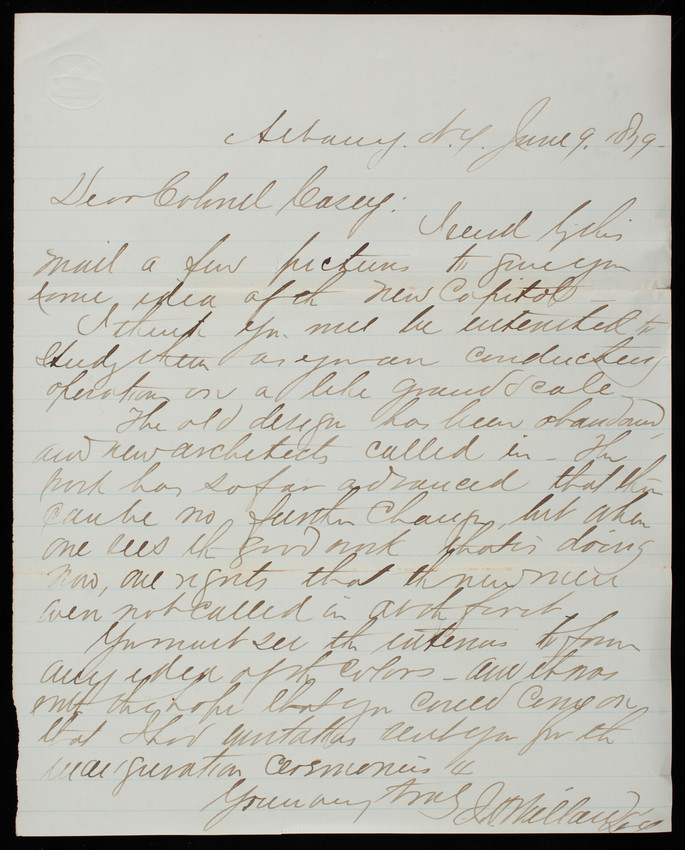 Albany. N.Y. June 9. 1879-
Dear Colonel Casey:
I send by this
mail a few pictures to give you
some idea of th new Capitol -
I think you will be interested to
study them as you are conducting
operations on a like grand scale
The old design has been abandoned
and new architects called in - The
work has so far advanced that ther
can be no further change, but when
one sees th good work that is doing
now, one regrets that th new men
were not called in at th first
You must see the interior to form
any idea of th colors - and it was
with the hope that you could come on
that I had invitations sent you for th
inauguration ceremonies &
Yours very truly